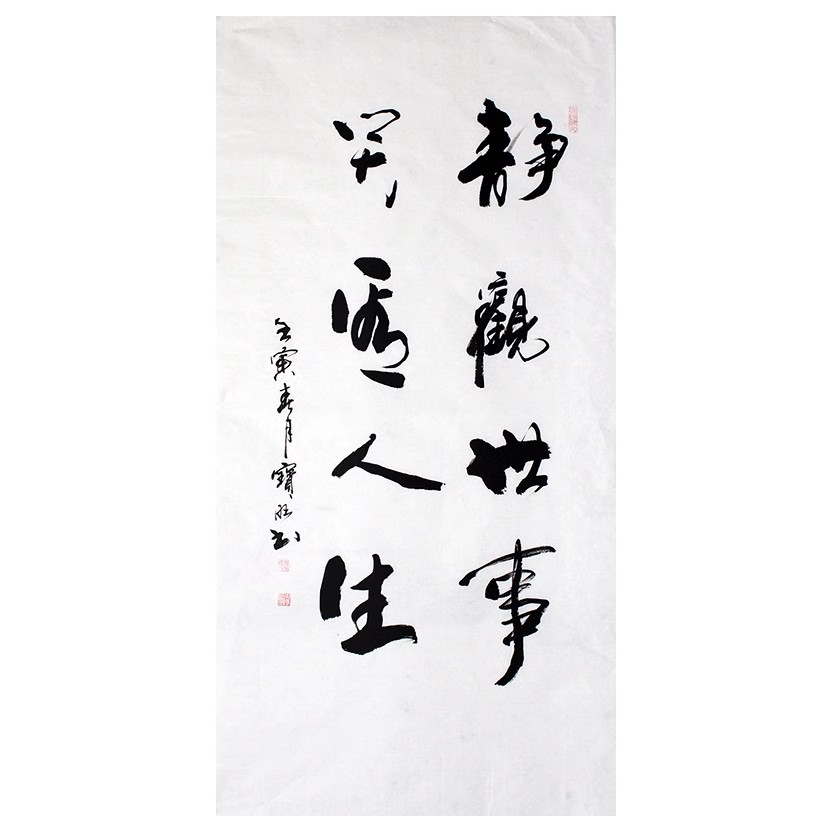 静觀世事
笑看人生
壬寅春月寶旺书